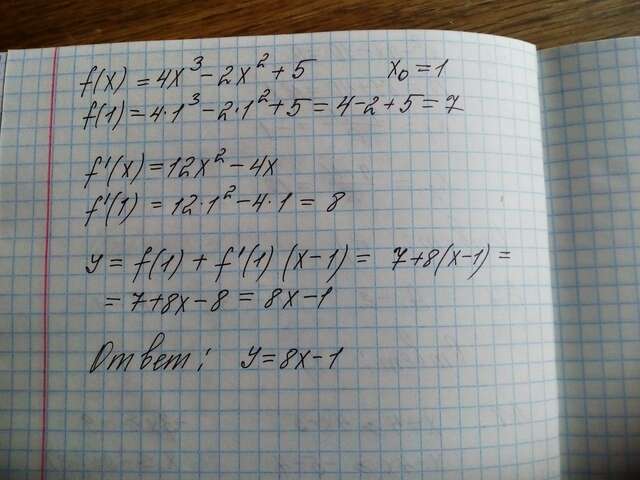 f(x) = 4x³ - 2x² + 5 x₀ = 1
f(1) = 4·1³ - 2·1² + 5 = 4 - 2 + 5 = 7
f'(x) = 12x² - 4x
f'(1) = 12·1² - 4·1 = 8
y = f(1) + f'(1) (x-1) = 7+8(x-1) =
= 7+8x-8 = 8x-1
Ответ: y = 8x-1